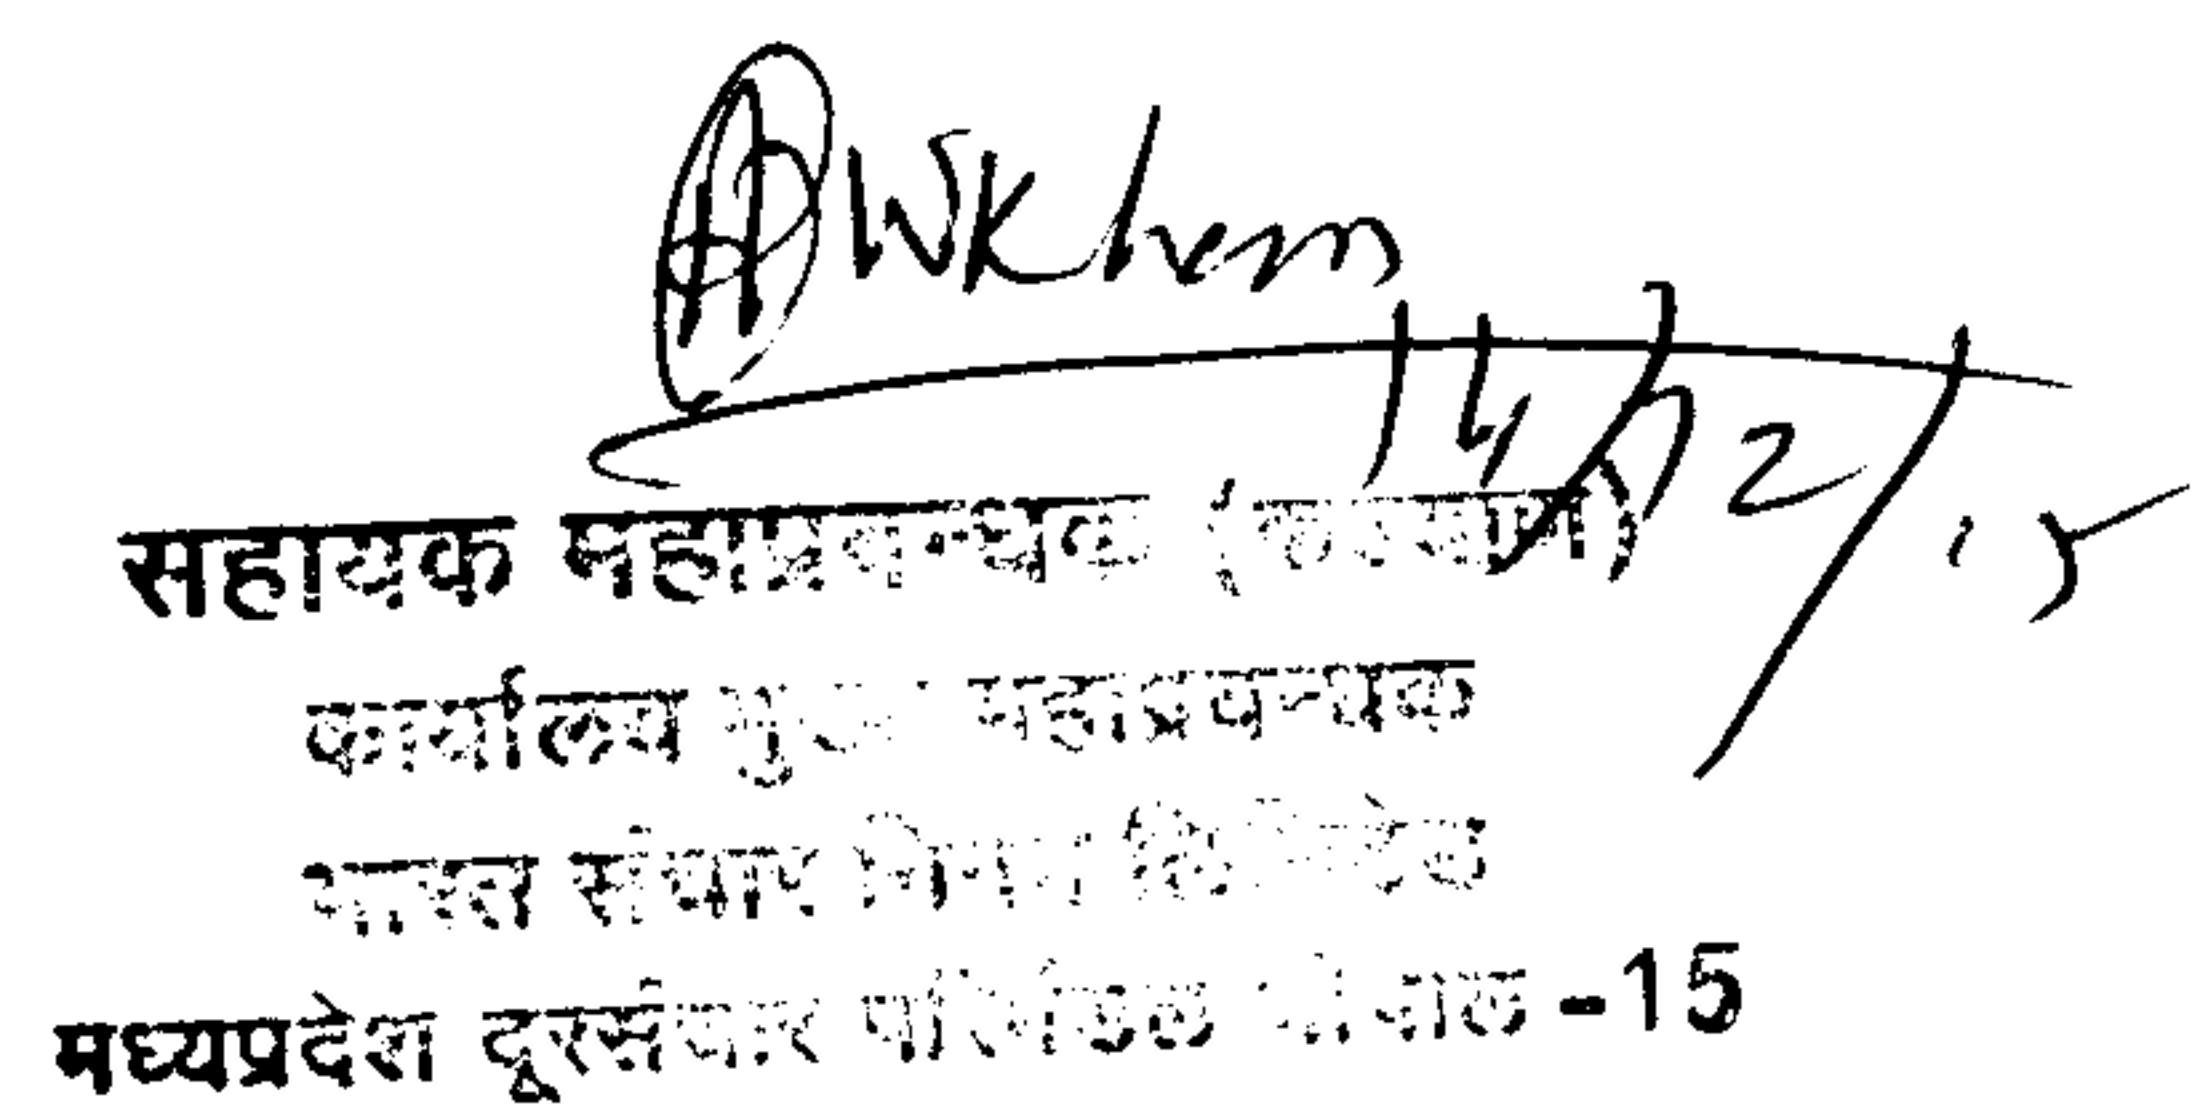 14/12/15
सहायक महाप्रबन्धक (
कार्यालय मुख्य महाप्रबन्धक
भारत संचार निगम लिमिटेड
मध्यप्रदेश दूरसंचार परिमंडल भोपाल -15